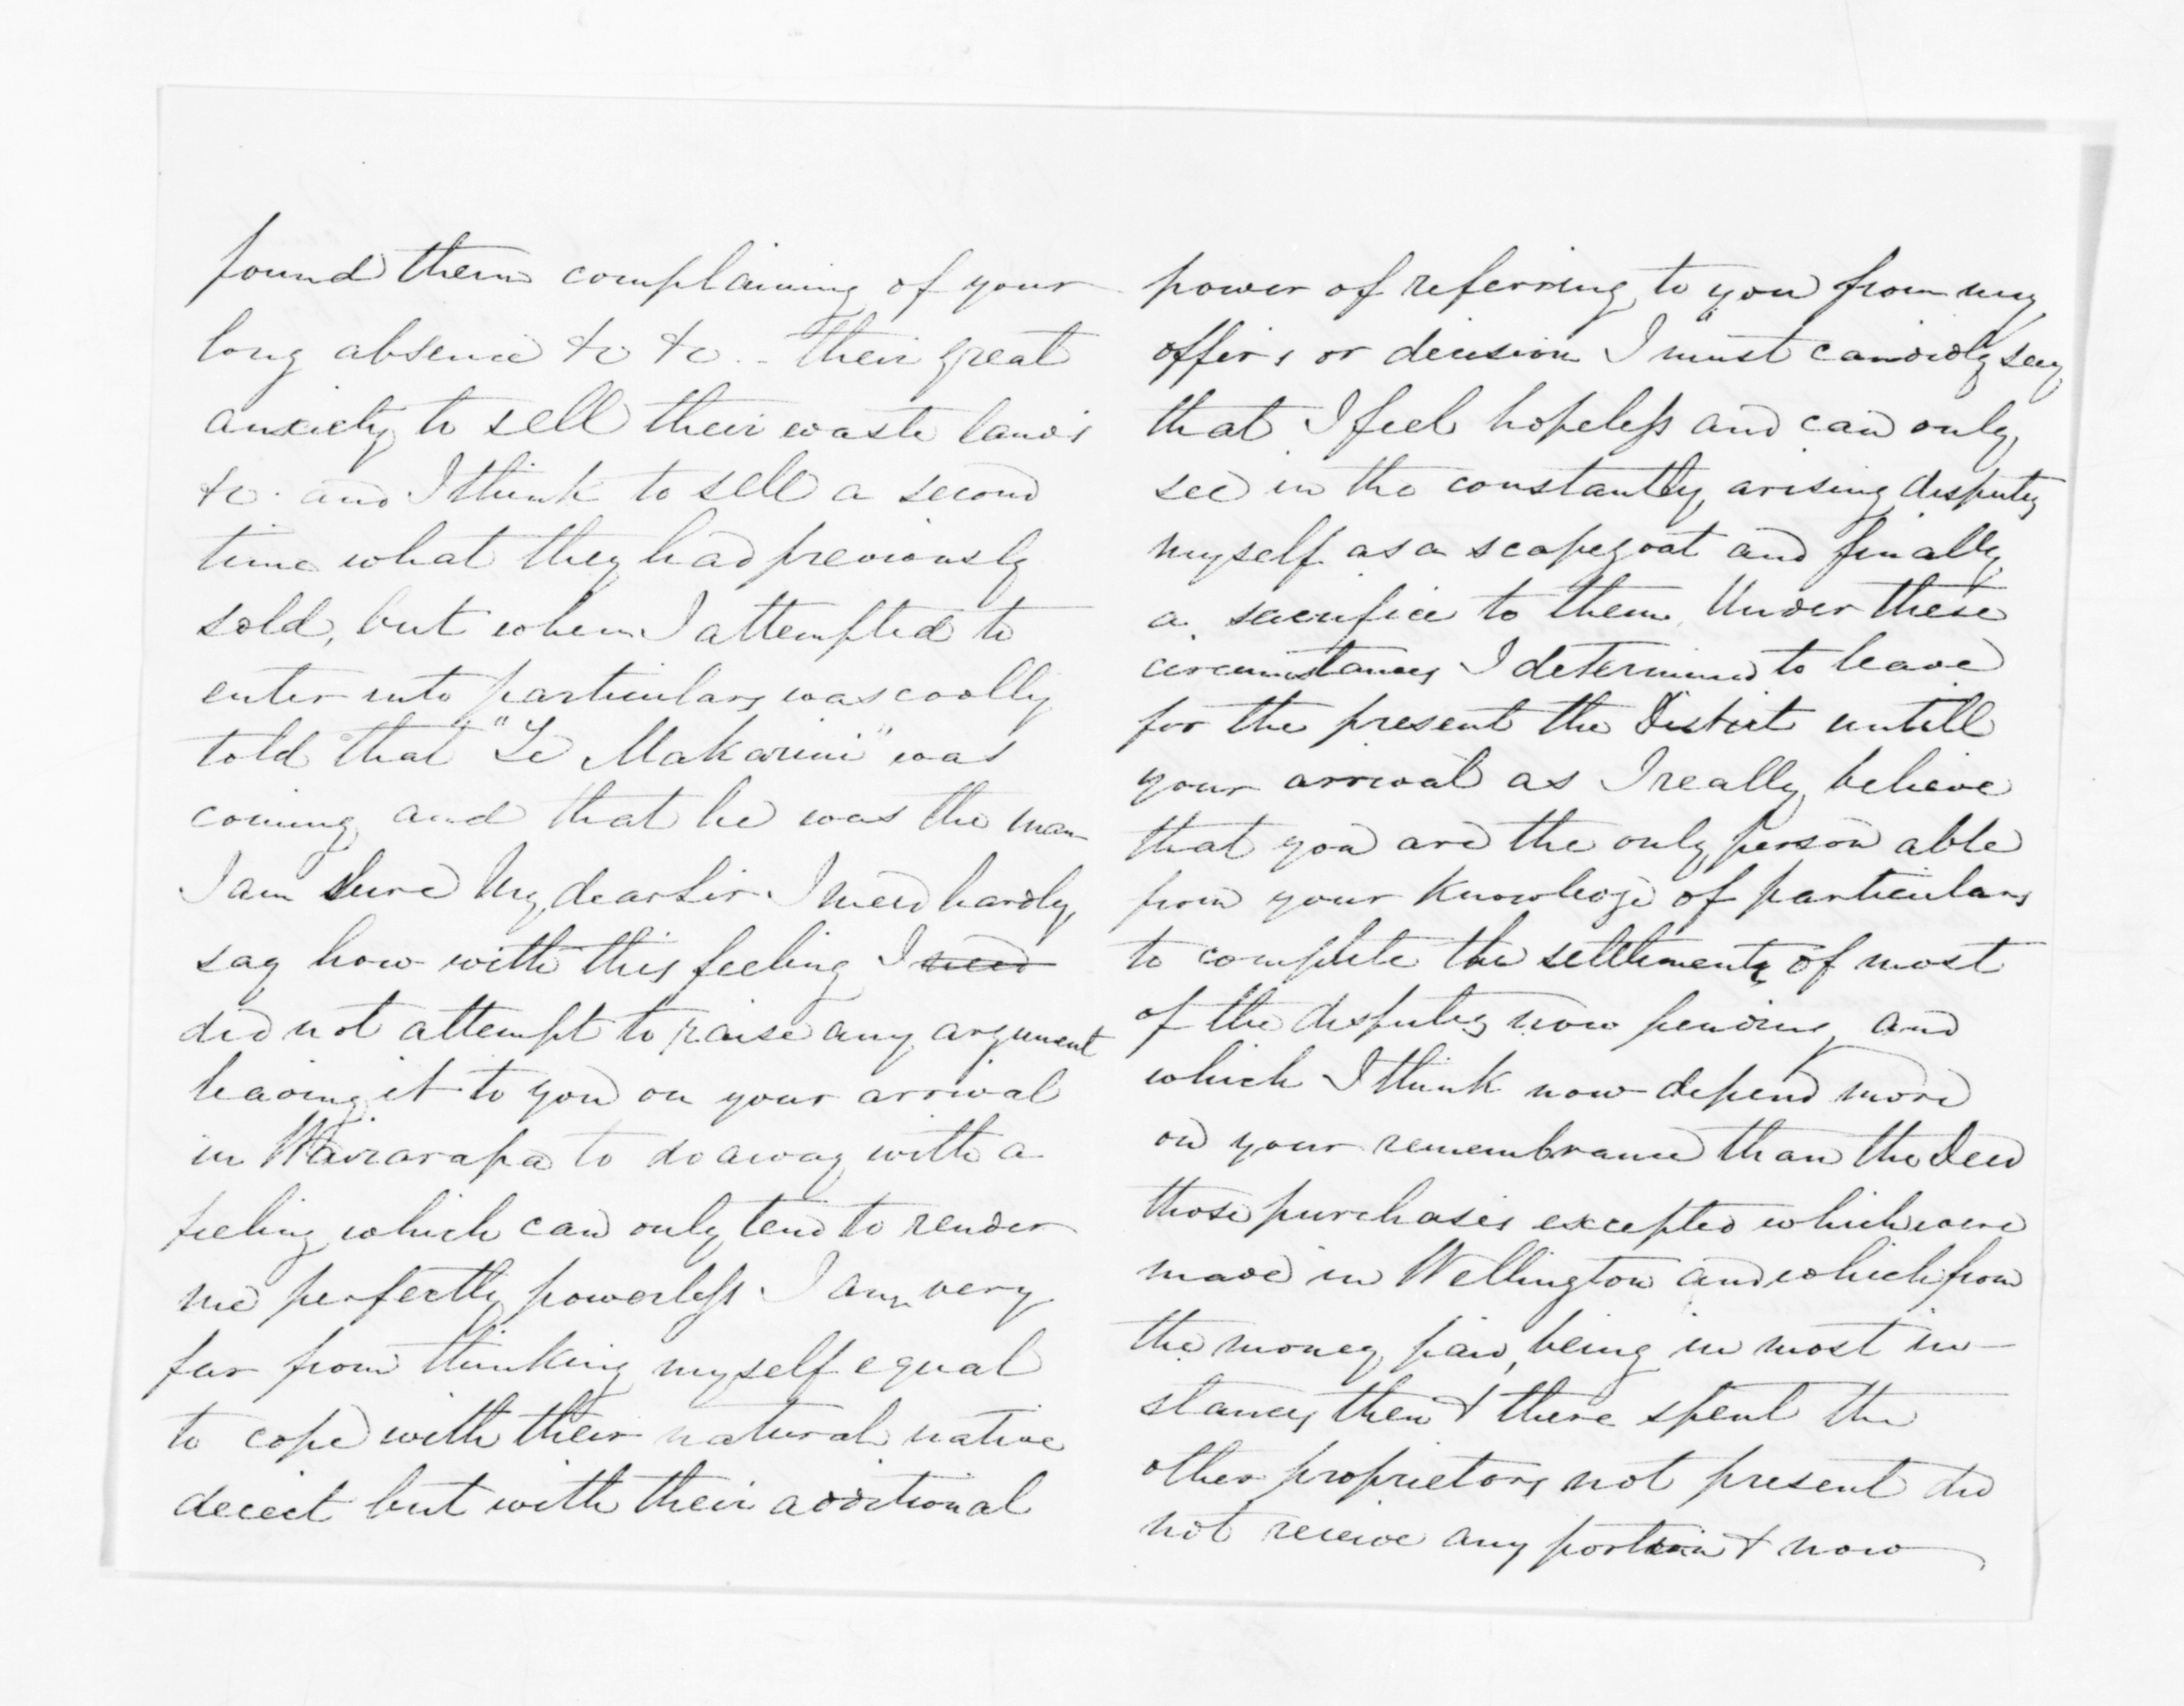 found them complaining of your
long absence &c &c .. their great
anxiety to sell their waste lands
&c. and I think to sell a second
time what they had previously
sold, but when I attempted to
enter into particulars was coolly
told that "Te Makarini" was
coming and that he was the man
I am sure My dear Sir I need hardly
say how with this feeling I need
did not attempt to raise any argument
leaving it to you on your arrival
in Wairarapa to do away with a
feeling which can only tend to render
me perfectly powerless I am very
far from thinking myself equal
to cope with their natural native
deceit but with their additional
power of referring to you from my
offers or decision I must candidly say
that I feel hopeless and can only
see in the constantly arising disputes
myself as a scapegoat and finally
a sacrifice to them. Under these
circumstances I determined to leave
for the present the District untill
your arrival as I really believe
that you are the only person able
from your knowledge of particulars
to complete the settlements of most
of the disputes now pending and
which I think now depend more
on your remembrance than the Deed
those purchases excepted which were
made in Wellington and which from
the money paid, being in most in-
stances then & there spent the
other proprietors not present did
not receive any portion & now